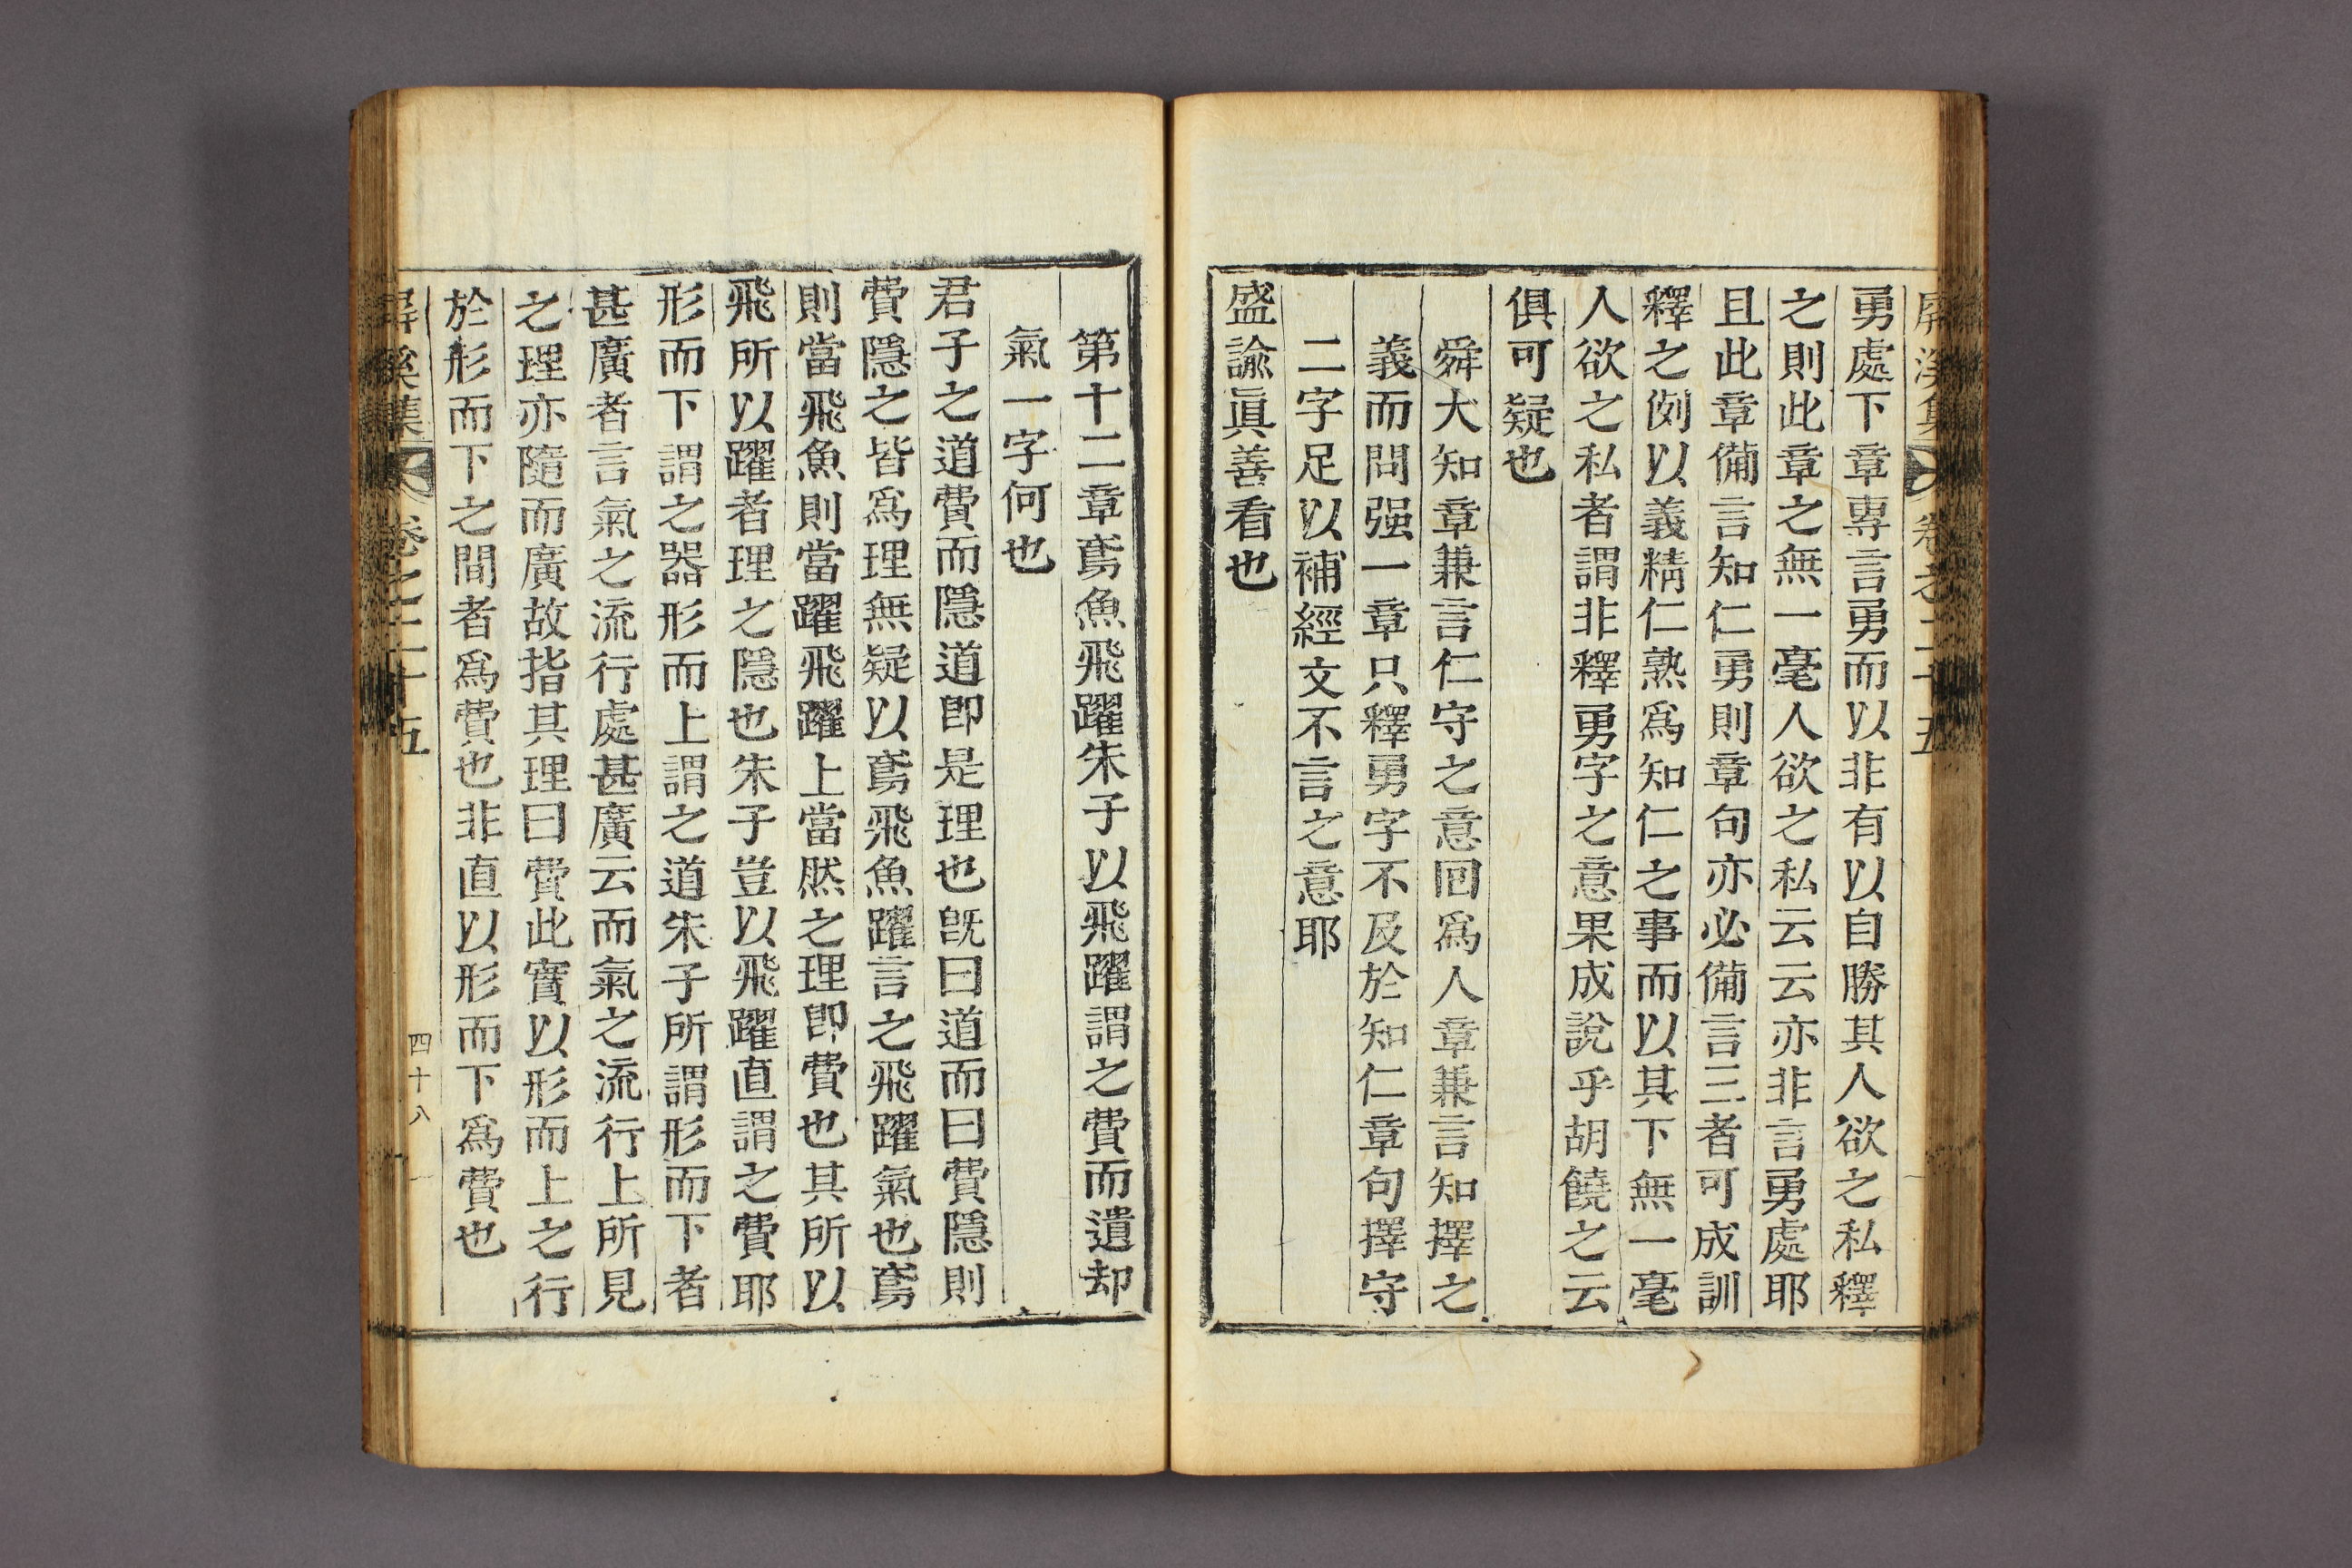 屛溪集 卷之二十五
勇處下章專言勇而以非有以自勝其人欲之私釋
之則此章之無一毫人欲之私云云亦非言勇處耶
且此章備言知仁勇則章句亦必備言三者可成訓
釋之例以義精仁熟爲知仁之事而以其下無一毫
人欲之私者謂非釋勇字之意果成說乎胡饒之云
俱可疑也
舜大知章兼言仁守之意回爲人章兼言知擇之
義而問强一章只釋勇字不及於知仁章句擇守
二字足以補經文不言之意耶
盛諭眞善看也
第十二章鳶魚飛躍朱子以飛躍謂之費而遺却
氣一字何也
君子之道費而隱道卽是理也旣曰道而曰費隱則
費隱之皆爲理無疑以鳶飛魚躍言之飛躍氣也鳶
則當飛魚則當躍飛躍上當然之理卽費也其所以
飛所以躍者理之隱也朱子豈以飛躍直謂之費耶
形而下謂之器形而上謂之道朱子所謂形而下者
甚廣者言氣之流行處甚廣云而氣之流行上所見
之理亦隨而廣故指其理曰費此實以形而上之行
於形而下之間者爲費也非直以形而下爲費也
屛溪集 卷之二十五 四十八